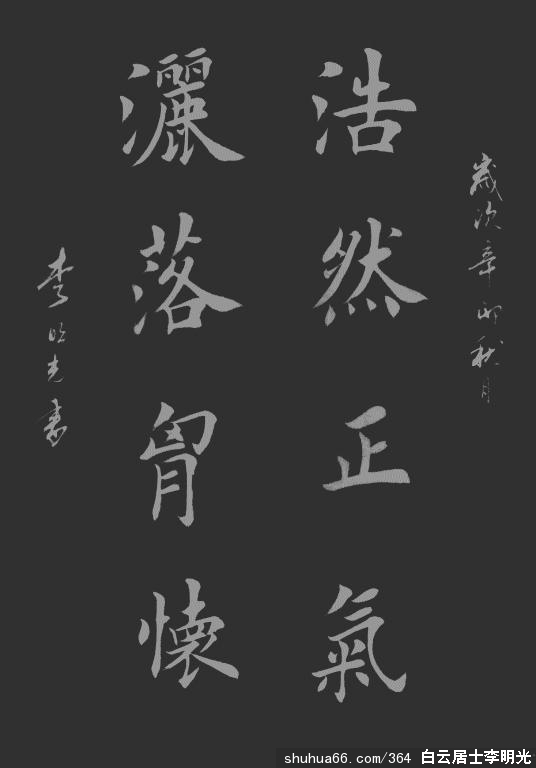 歲次辛卯秋月
浩然正氣
灑落胷懷
李明光書
shuhua66.com/364 白云居士李明光